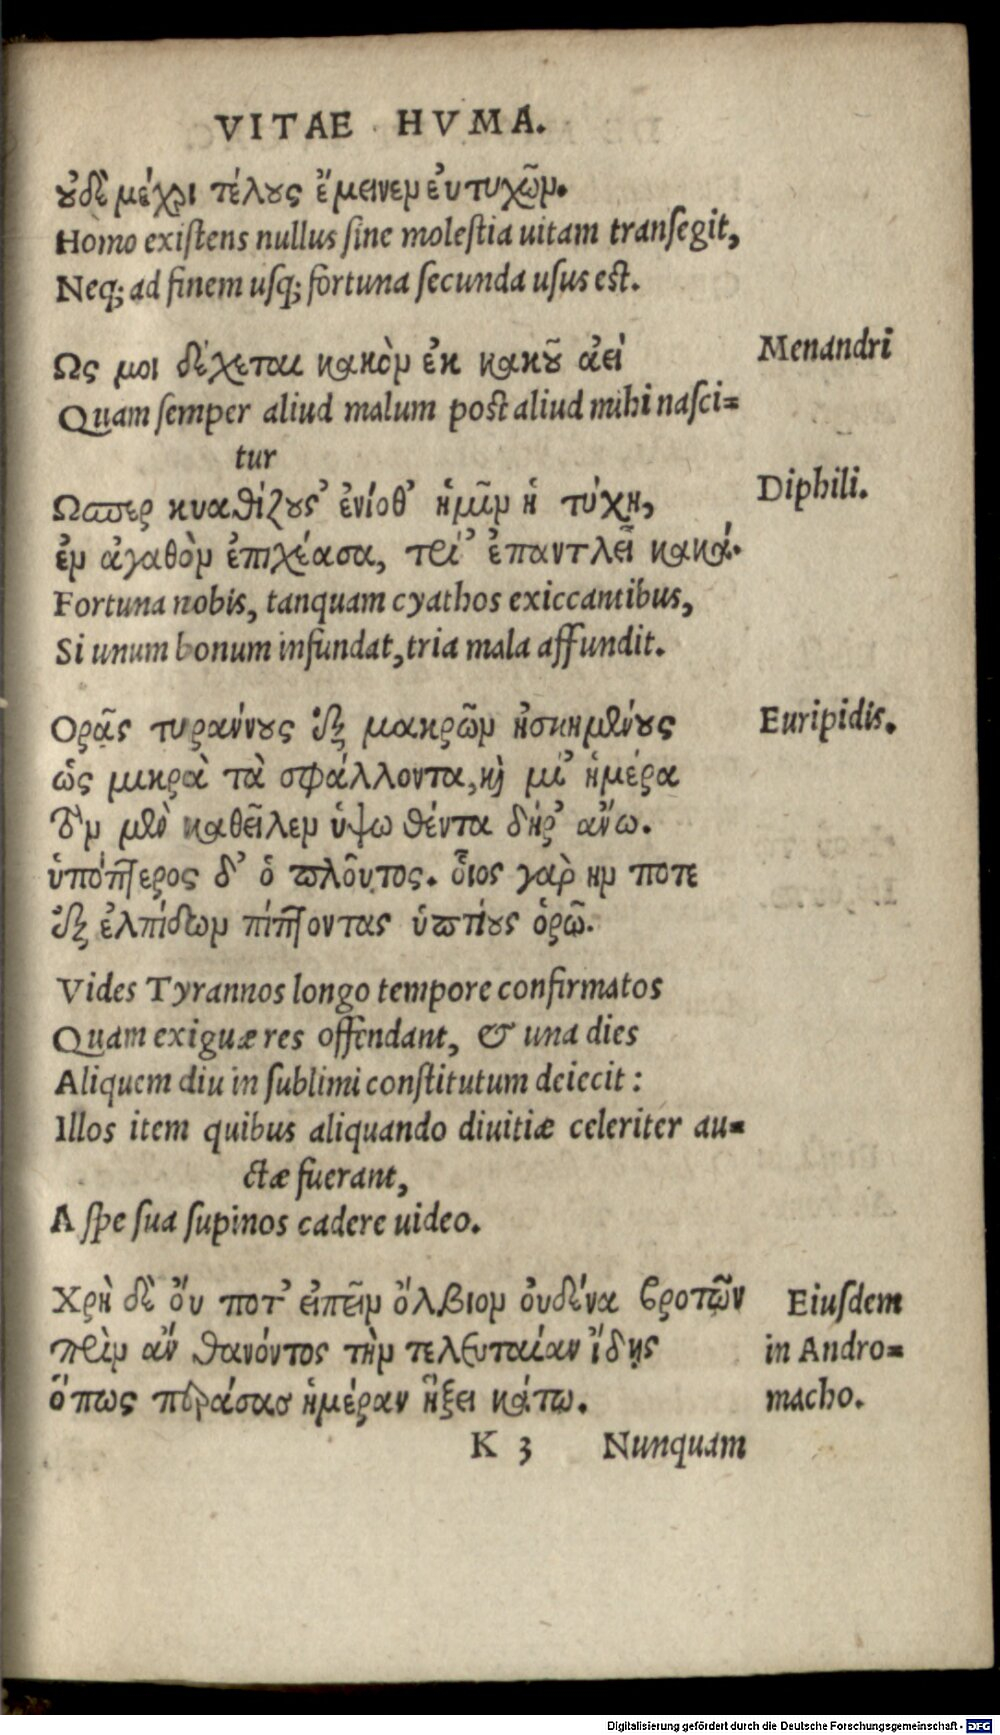 VITAE HVMA.
ȣδὲ μέχρι τέλȣς ἔμεινεν εὐτυχῶν.
Homo existens nullus sine molestia uitam transegit,
Neq; ad finem usq; fortuna secunda usus est.
Ως μοι δέχεται κακὸν ἐκ κακȣ͂ ἀεί
Menandri
Quam semper aliud malum post aliud mihi nasci=
tur
Ωσπερ κυαθίζȣσ' ἐνίοθ' ἡμῖν ἡ τύχη,
Diphili.
ἓν ἀγαθὸν ἐπιχέασα, τρί' ἐπαντλεῖ κακά.
Fortuna nobis, tanquam cyathos exiccantibus,
Si unum bonum infundat, tria mala affundit.
Ορᾷς τυράννȣς διὰ μακρῶν ἠσκημένȣς
Euripidis.
ὡς μικρὰ τὰ σφάλλοντα, κỳ μί' ἡμέρα
τὸν μὲν καθεῖλεν ὑψωθέντα δήρ' ἄνω.
ὑπόπτερος δ' ὁ πλοῦτος. οἷος γὰρ ην ποτε
ἐξ ἐλπίδων πίπτοντας ὑπτίȣς ὁρῶ.
Vides Tyrannos longo tempore confirmatos
Quam exiguæ res offendant, & una dies
Aliquem diu in sublimi constitutum deiecit:
Illos item quibus aliquando diuitiæ celeriter au=
ctæ fuerant,
A spe sua supinos cadere uideo.
Χρὴ δὲ ὄυ ποτ' ἐιπεῖν ὄλβιον ὀυδένα βροτῶν
Eiusdem
πρὶν ἂν θανόντος τὴν τελευταίαν ἴδῃς
in Andro=
ὅπως περάσας ἡμέραν ἥξει κάτω.
macho.
K 3 Nunquam
Digitalisierung gefördert durch die Deutsche Forschungsgemeinschaft - DFG